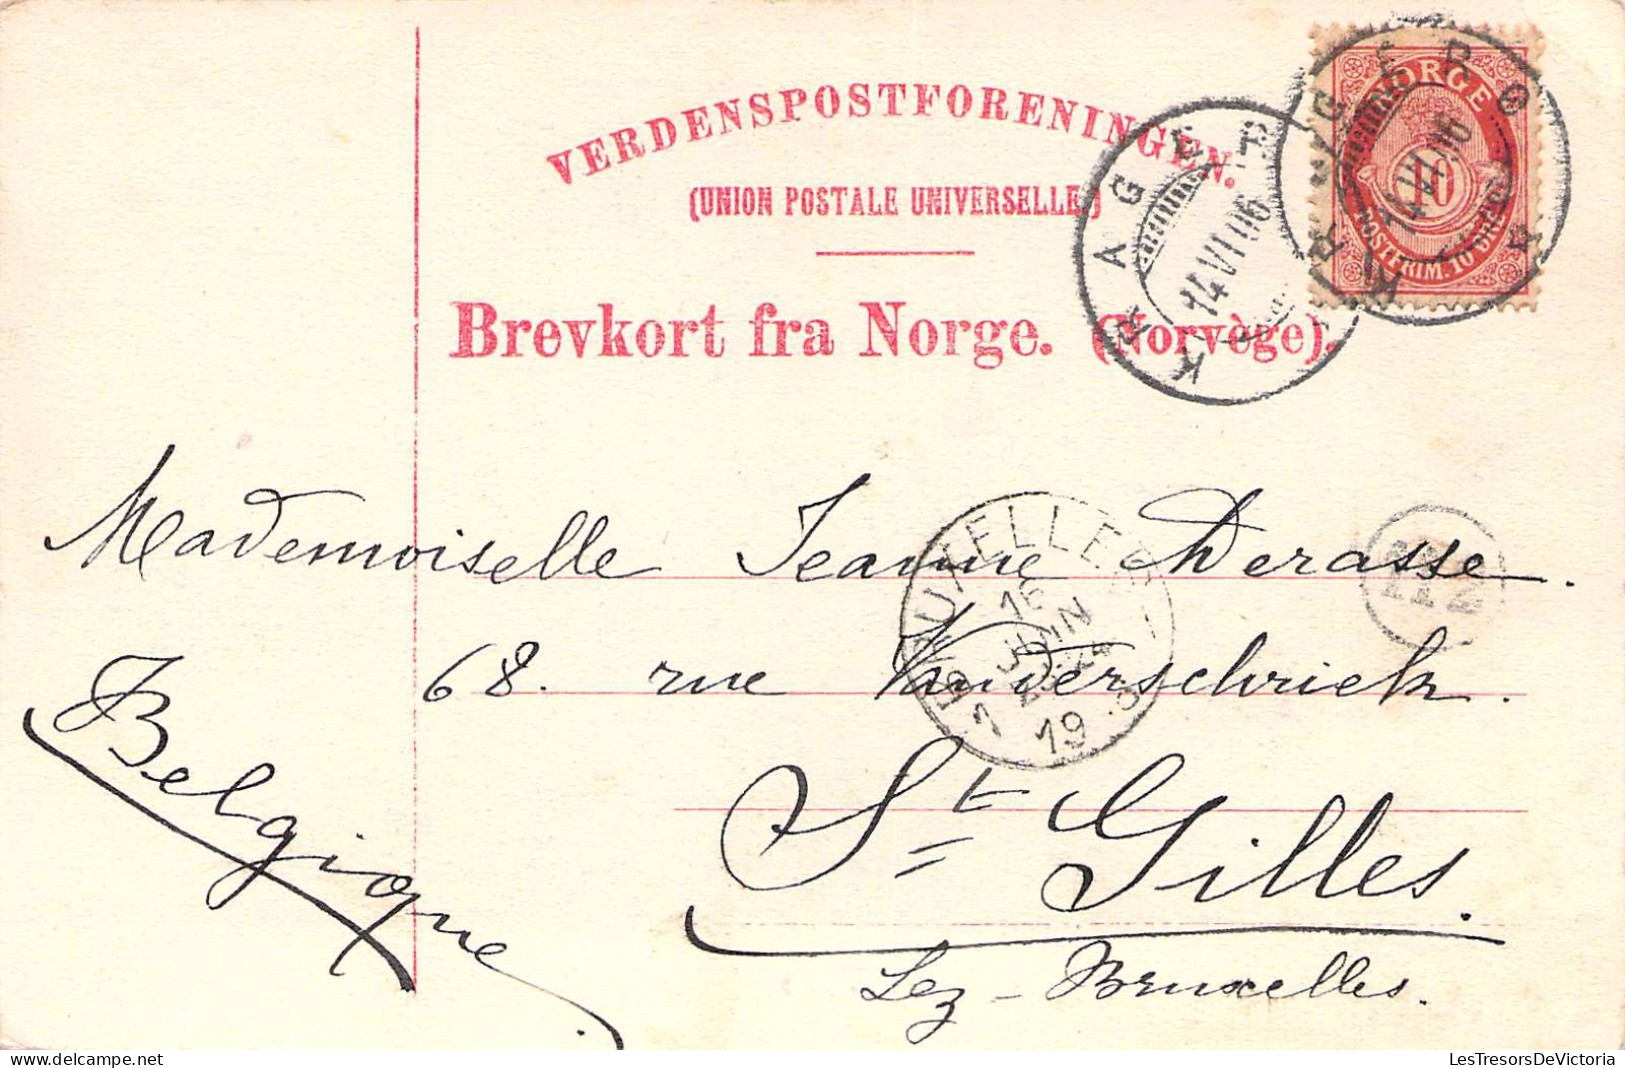 VERDENSPOSTFORENINGEN.
(UNION POSTALE UNIVERSELLE)
Brevkort fra Norge. (Norvège).
NORGE
10
POSTFRIM. 10
KRAGERØ
14 VI 06
KRAGERØ
14 VI 06
BRUXELLES
JUIN
19
Mademoiselle Jeanne Derasse.
68. rue Vanderschrick.
St Gilles.
Lez-Bruxelles.
Belgique.
LesTresorsDeVictoria